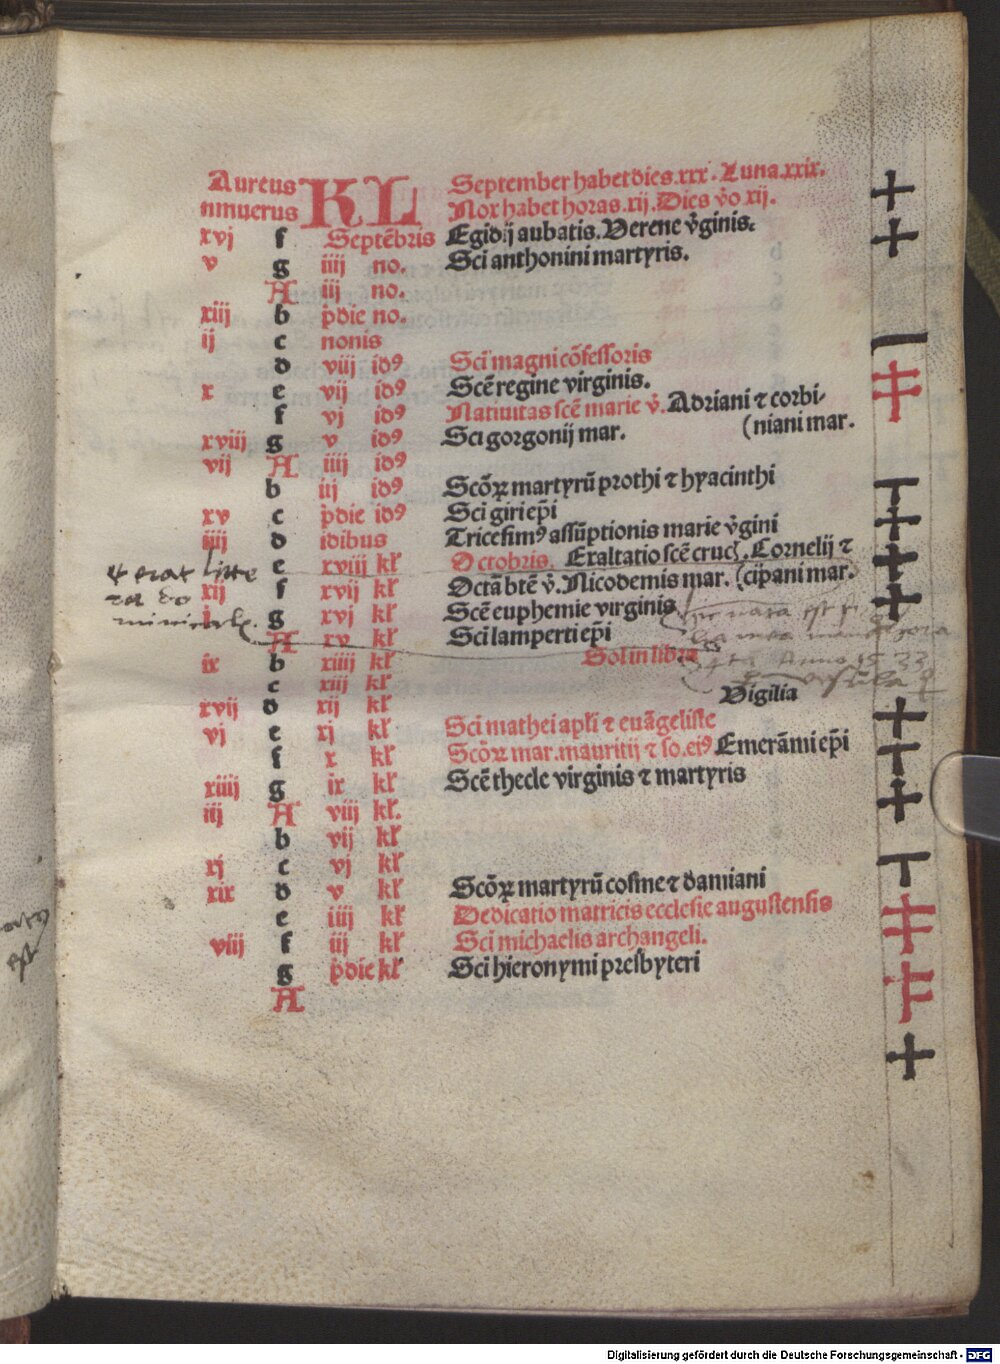 Aureus KL September habet dies.xxx. Luna.xxix.
nmuerus Nox habet horas.xij.Dies v̊o xij.
xvj f Septēbris Egidij aubatis.Verene v̊ginis.
v g iiij no. Sci anthonini martyris.
A iij no.
xiij b p̄die no.
ij c nonis
d viij idꝰ Sci magni cōfessoris
x e vij idꝰ Scē regine virginis.
f vj idꝰ Natiuitas scē marie v̊. Adriani ⁊ corbi-
xviij g v idꝰ Sci gorgonij mar. (niani mar.
vij A iiij idꝰ
b iij idꝰ Scōꝝ martyrū prothi ⁊ hyacinthi
xv c p̄die idꝰ Sci giri ep̄i
iiij d idibus Tricesimꝰ assūptionis marie v̊gini
e xviij kl̄ Octobris. Exaltatio scē crucꝭ. Cornelij ⁊
& erat litte
xij f xvij kl̄ Octā btē v̊. Nicodemis mar. (cipani mar.
ra do
j g xvj kl̄ Scē euphemie virginis hic nata est fi
minicale.
A xv kl̄ Sci lamperti ep̄i lia mea
ix b xiiij kl̄ Sol in libra
Anno 1533
c xiij kl̄ Vigilia
ursula
xvij d xij kl̄
vj e xj kl̄ Sci mathei apl̄i ⁊ euāgeliste
f x kl̄ Scōꝝ mar. mauritij ⁊ so.eiꝰ Emerāmi ep̄i
xiiij g ix kl̄ Scē thecle virginis ⁊ martyris
iij A viij kl̄.
b vij kl̄
xj c vj kl̄
xix d v kl̄ Scōꝝ martyrū cosme ⁊ damiani
e iiij kl̄ Dedicatio matricis ecclesie augustensis
viij f iij kl̄ Sci michaelis archangeli.
g p̄die kl̄ Sci hieronymi presbyteri
A
est
Digitalisierung gefördert durch die Deutsche Forschungsgemeinschaft - DFG